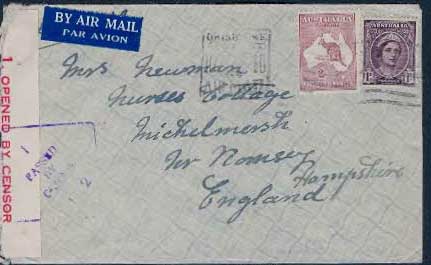 BY AIR MAIL
PAR AVION
AUSTRALIA
AUSTRALIA
Mrs Newman
Nurses Cottage
Michelmersh
Nr Romsey
Hampshire
England
1 OPENED BY CENSOR
PASSED
2